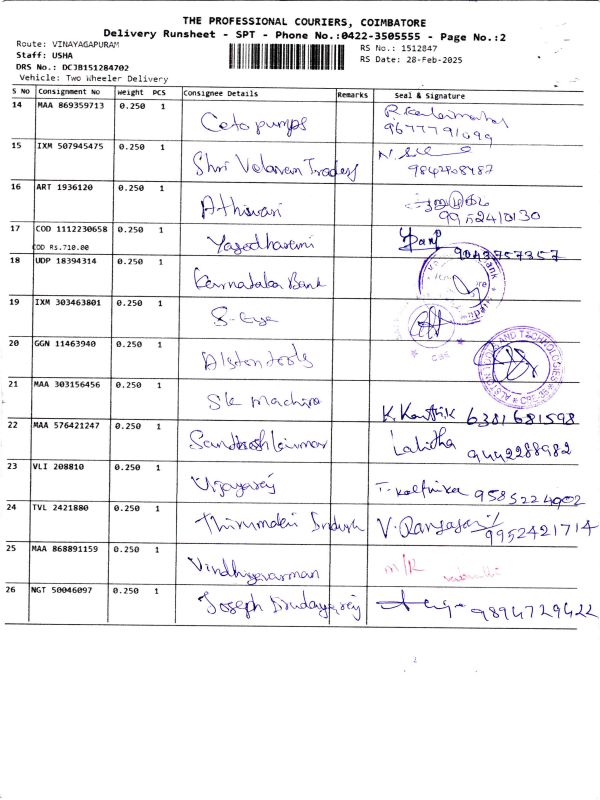 THE PROFESSIONAL COURIERS, COIMBATORE
Delivery Runsheet - SPT - Phone No.:0422-3505555 - Page No.:2
Route: VINAYAGAPURAM
Staff: USHA
DRS No.: DCJB151284702
Vehicle: Two Wheeler Delivery
RS No.: 1512847
RS Date: 28-Feb-2025
S No Consignment No Weight PCS Consignee Details Remarks Seal & Signature
14 MAA 869359713 0.250 1 Ceto pumps
9677791099
15 IXM 507945475 0.250 1 Shri Velavan Traders
9842908487
16 ART 1936120 0.250 1 Athivari
9952410130
17 COD 1112230658 0.250 1 Yasodharani 9043757357
COD Rs.710.00
18 UDP 18394314 0.250 1 Karnataka Bank
19 IXM 303463801 0.250 1 S-Eye
CBE
20 GGN 11463940 0.250 1 Alston tools
21 MAA 303156456 0.250 1 SK machine K. Karthik 6381681598
22 MAA 576421247 0.250 1 Santhoshkumar Lalitha 9442288982
23 VLI 208810 0.250 1 Vijayaraj 9585224902
24 TVL 2421880 0.250 1 Thirumalai 9952421714
25 MAA 868891159 0.250 1 M/R
26 NGT 50046097 0.250 1 Joseph Irudayaraj 9894729422